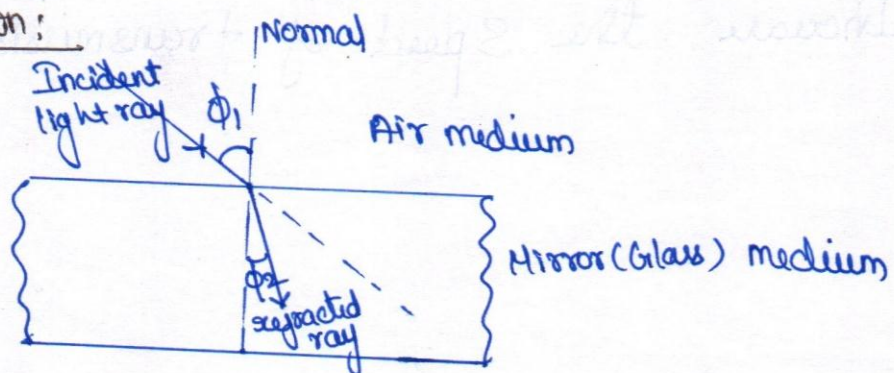 on:
Normal
Incident
light ray
ϕ1
Air medium
Mirror (Glass) medium
ϕ2
refracted
ray